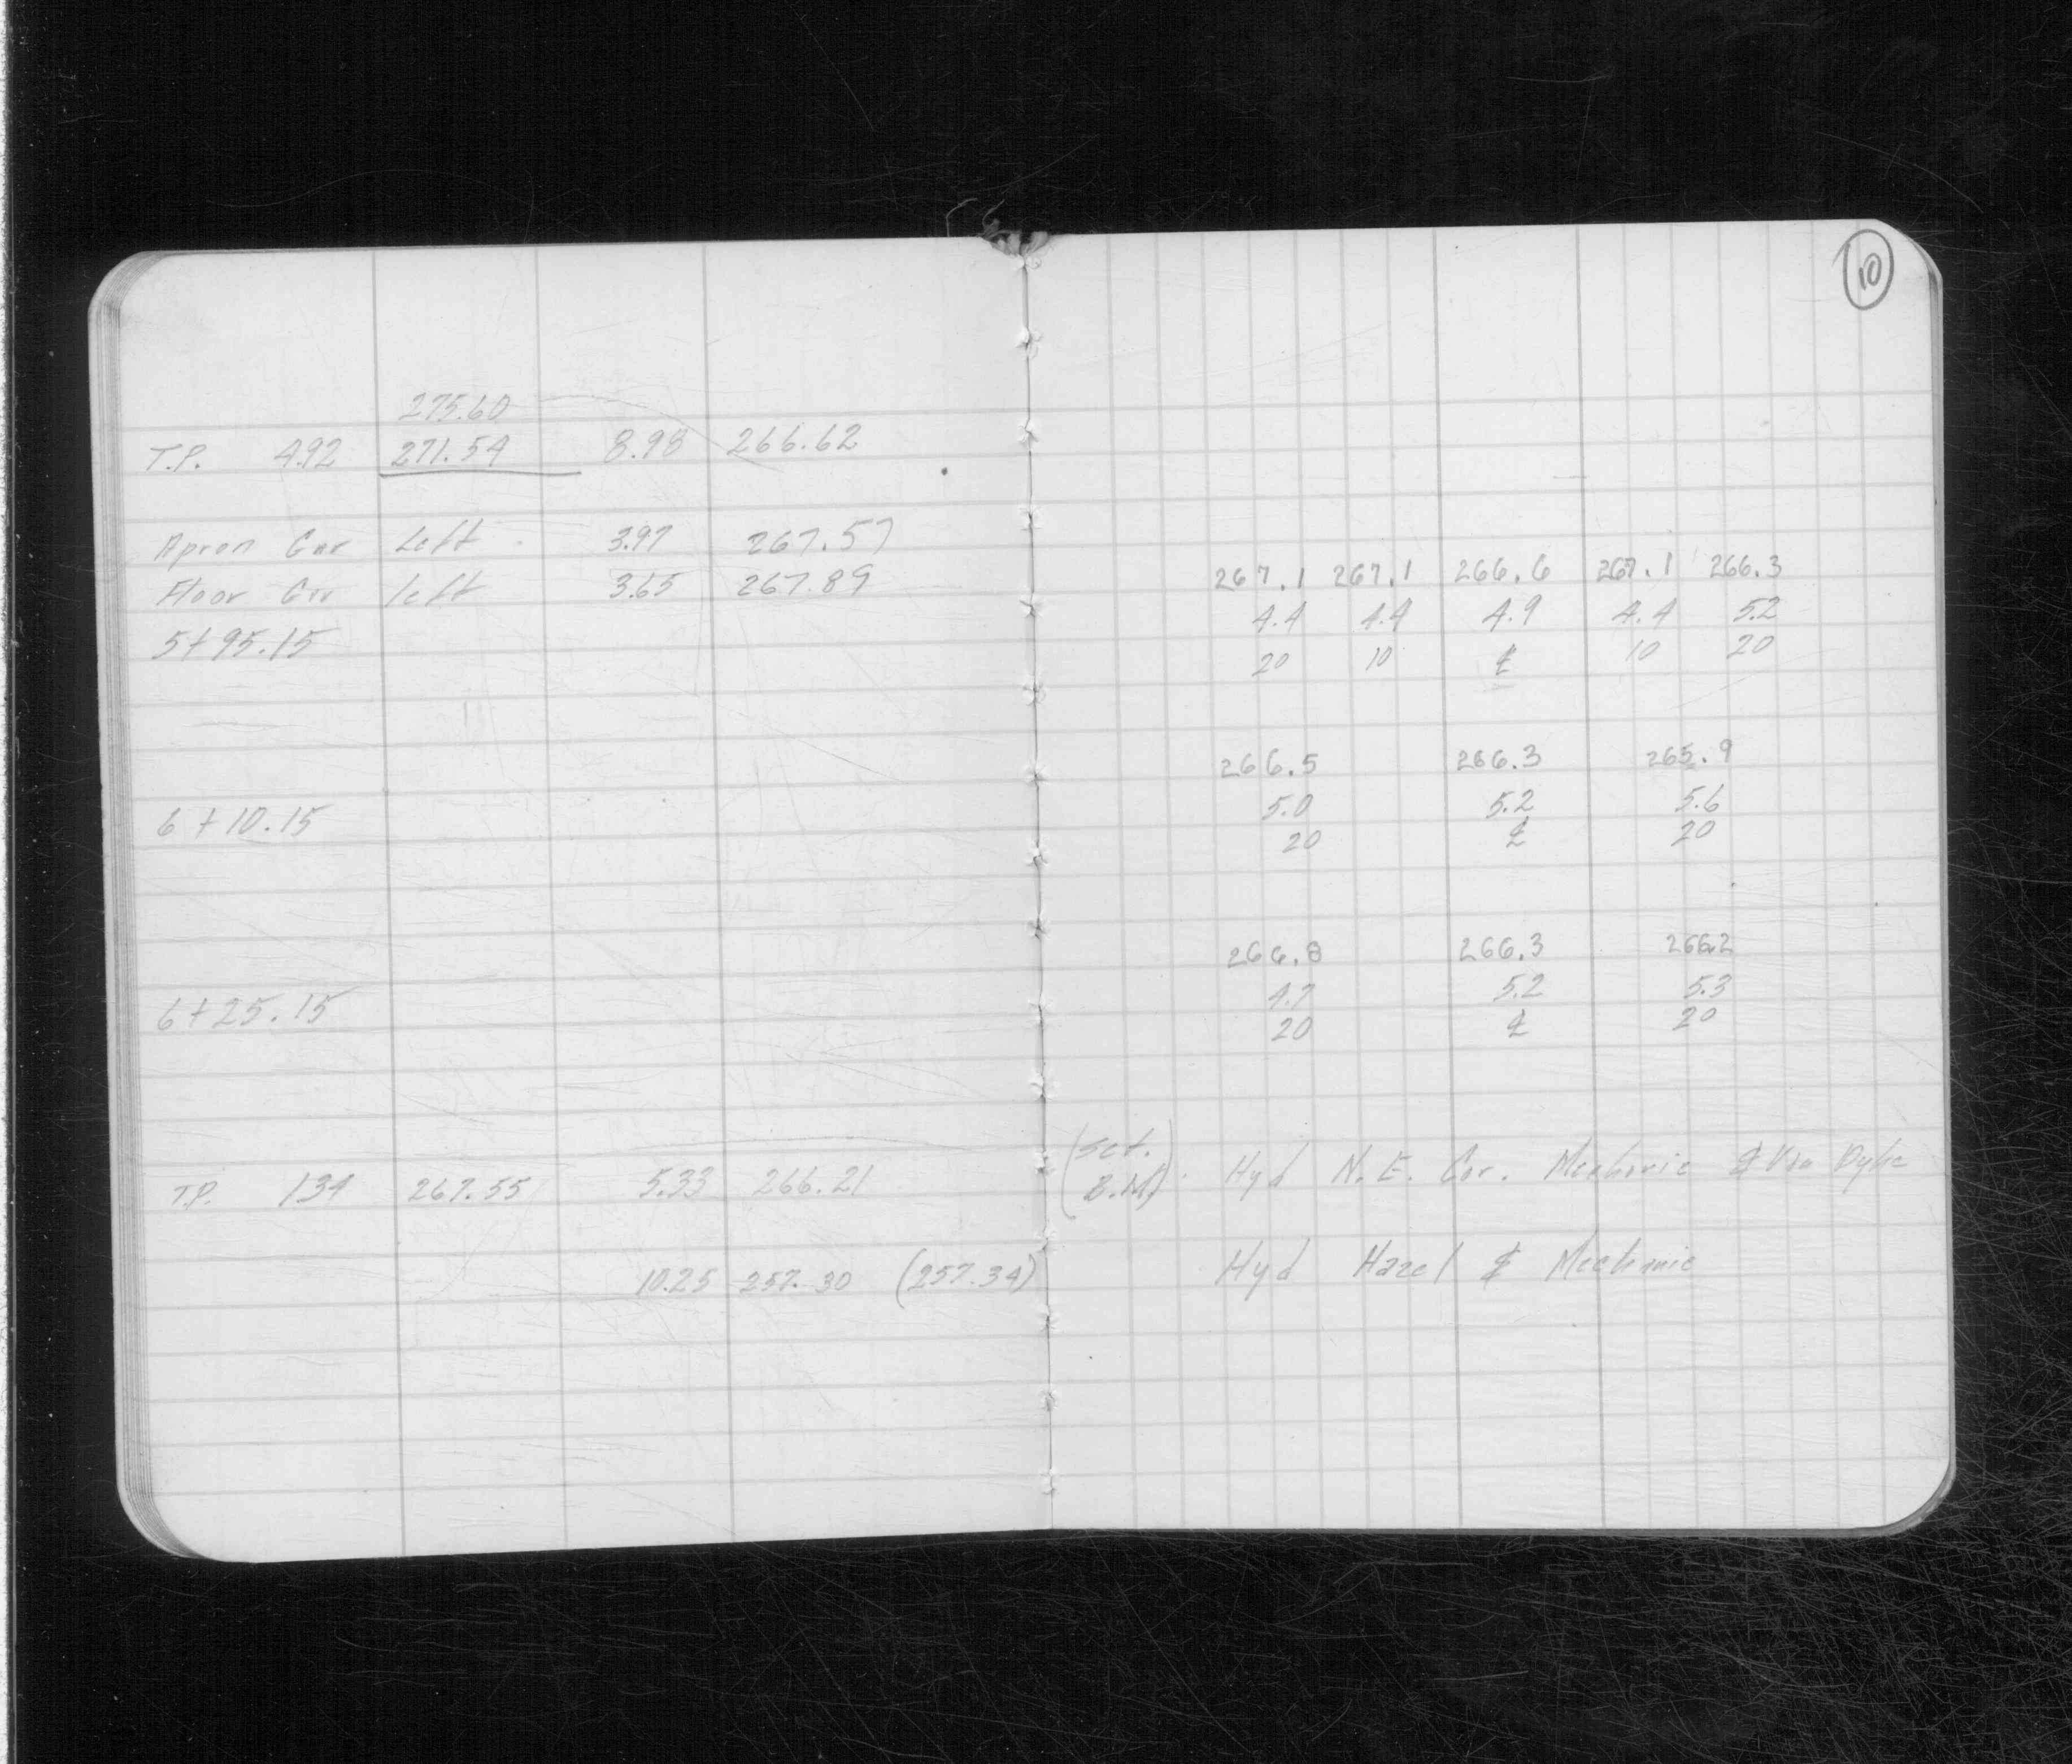 10
275.60
T.P. 4.92 271.54 8.98 266.62
Apron Gar Left 3.97 267.57
Floor Gar left 3.65 267.89
5+95.15
6+10.15
6+25.15
T.P. 1.34 267.55 5.33 266.21
10.25 257.30 (257.34)
267.1 267.1 266.6 267.1 266.3
4.4 4.4 4.9 4.4 5.2
20 10 ℄ 10 20
266.5 266.3 265.9
5.0 5.2 5.6
20 ℄ 20
266.8 266.3 266.2
4.7 5.2 5.3
20 ℄ 20
(set. B.M.) Hyd N.E. Cor. Mechanic & Van Dyke
Hyd Hazel & Mechanic